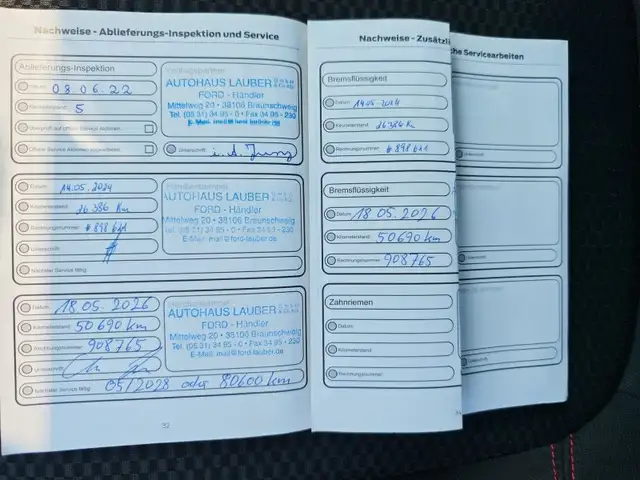 Nachweise - Ablieferungs-Inspektion und Service
Ablieferungs-Inspektion
Datum: 08.06.22
Kilometerstand: 5
Offene Service Aktionen
Unterschrift: i. A. Jung
AUTOHAUS LAUBER GMBH
FORD - Händler
Mittelweg 20 • 38106 Braunschweig
Tel. (05 31) 34 95 - 0 • Fax 34 95 - 230
Datum: 14.05.2024
Kilometerstand: 26386 Km
Rechnungsnummer:
Unterschrift:
Nächster Service fällig:
AUTOHAUS LAUBER
FORD - Händler
Mittelweg 20 • 38106 Braunschweig
Fax 34 95 - 230
E-Mail: mail@ford-lauber.de
Datum: 18.05.2026
Kilometerstand: 50690 km
Rechnungsnummer: 908765
Unterschrift:
Nächster Service fällig: 05/2028 oder 80600 km
AUTOHAUS LAUBER
FORD - Händler
Mittelweg 20 • 38106 Braunschweig
Tel. (05 31) 34 95 - 0 • Fax 34 95 - 230
E-Mail: mail@ford-lauber.de
32
Nachweise - Zusätzli
Bremsflüssigkeit
Datum: 14.05.2024
Kilometerstand: 26386 Km
Rechnungsnummer:
Bremsflüssigkeit
Datum: 18.05.2026
Kilometerstand: 50690 km
Rechnungsnummer: 908765
Zahnriemen
Datum:
Kilometerstand:
Rechnungsnummer:
che Servicearbeiten
Unterschrift:
Unterschrift:
Unterschrift: